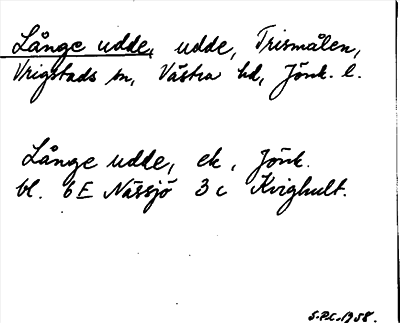 Långe udde, udde, Trismålen,
Vrigstads sn, Västra hd, Jönk. l.
Långe udde, ek, Jönk.
bl. 6E Nässjö 3c Kvighult.
S.P.C. 1958.